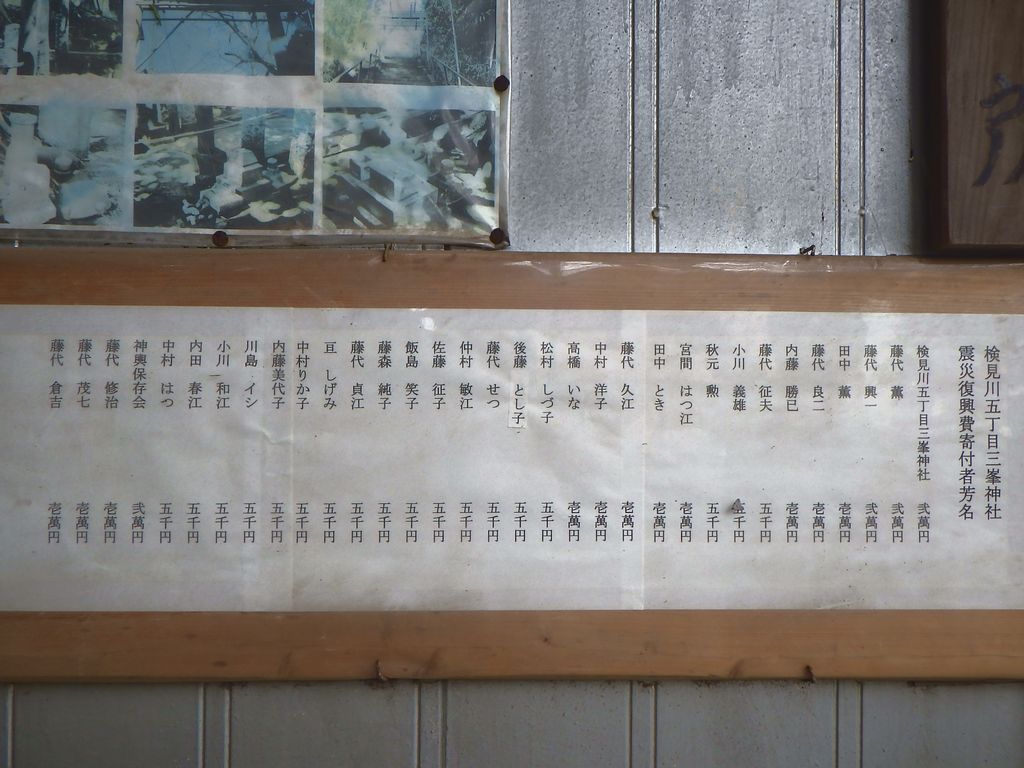 検見川五丁目三峯神社
震災復興費寄付者芳名
検見川五丁目三峯神社 弐萬円
藤代 薫 弐萬円
藤代 興一 弐萬円
田中 薫 壱萬円
藤代 良二 壱萬円
内藤 勝巳 壱萬円
藤代 征夫 五千円
小川 義雄 壱千円
秋元 勲 五千円
宮間 はつ江 壱萬円
田中 とき 壱萬円
藤代 久江 壱萬円
中村 洋子 壱萬円
高橋 いな 壱萬円
松村 しづ子 五千円
後藤 とし子 五千円
藤代 せつ 五千円
仲村 敏江 五千円
佐藤 征子 五千円
飯島 笑子 五千円
藤森 純子 五千円
藤代 貞江 五千円
亘 しげみ 五千円
中村りか子 五千円
内藤美代子 五千円
川島 イシ 五千円
小川 和江 五千円
内田 春江 五千円
中村 はつ 五千円
神輿保存会 弐萬円
藤代 修治 壱萬円
藤代 茂七 壱萬円
藤代 倉吉 壱萬円